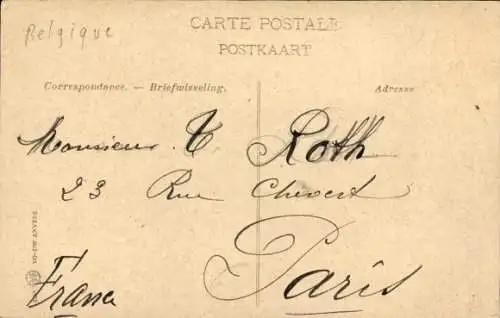 Belgique
CARTE POSTALE
POSTKAART
Correspondance. — Briefwisseling.
Adresse
Monsieur T Roth
23 Rue Chevert
Paris
France